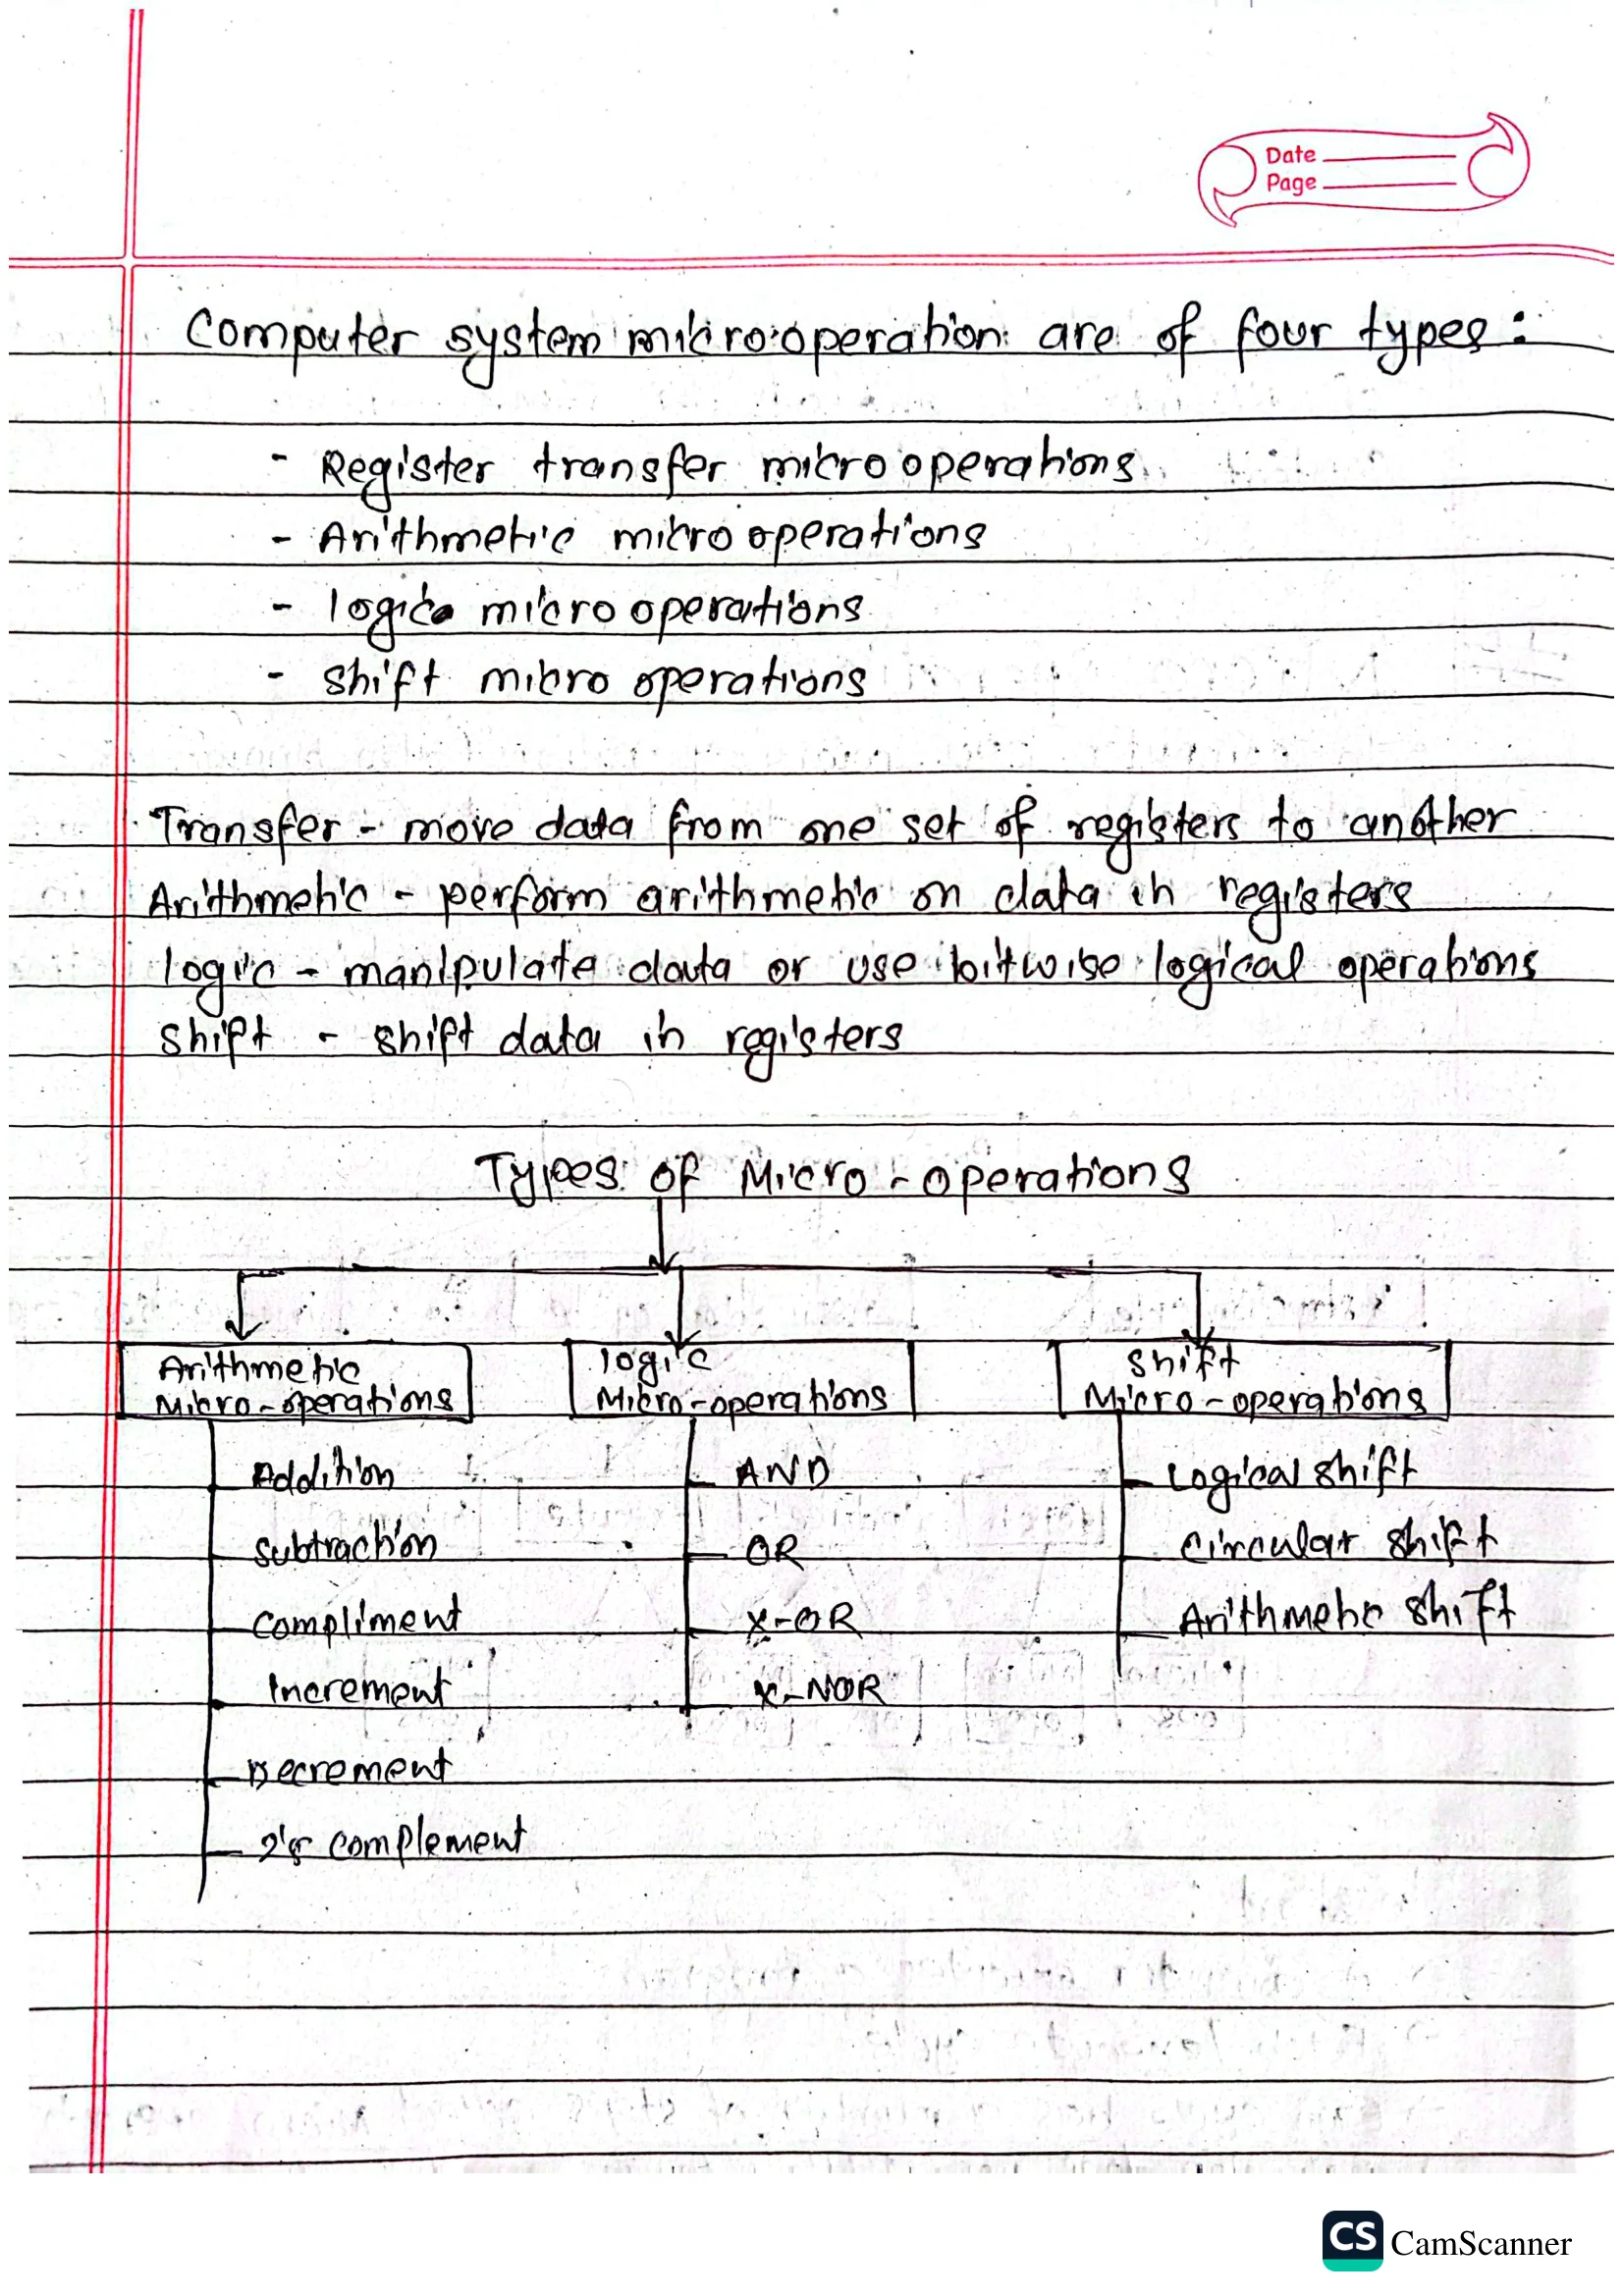 Date
Page
Computer system microoperation are of four types :
- Register transfer micro operations
- Arithmetic micro operations
- logic micro operations
- shift micro operations
Transfer - move data from one set of registers to another
Arithmetic - perform arithmetic on data in registers
logic - manipulate data or use bitwise logical operations
shift - shift data in registers
Types of Micro-operations
Arithmetic
Micro-operations
logic
Micro-operations
shift
Micro-operations
Addition
AND
Logical shift
subtraction
OR
Circular shift
compliment
X-OR
Arithmetic shift
Increment
X-NOR
Decrement
2's complement
CS CamScanner